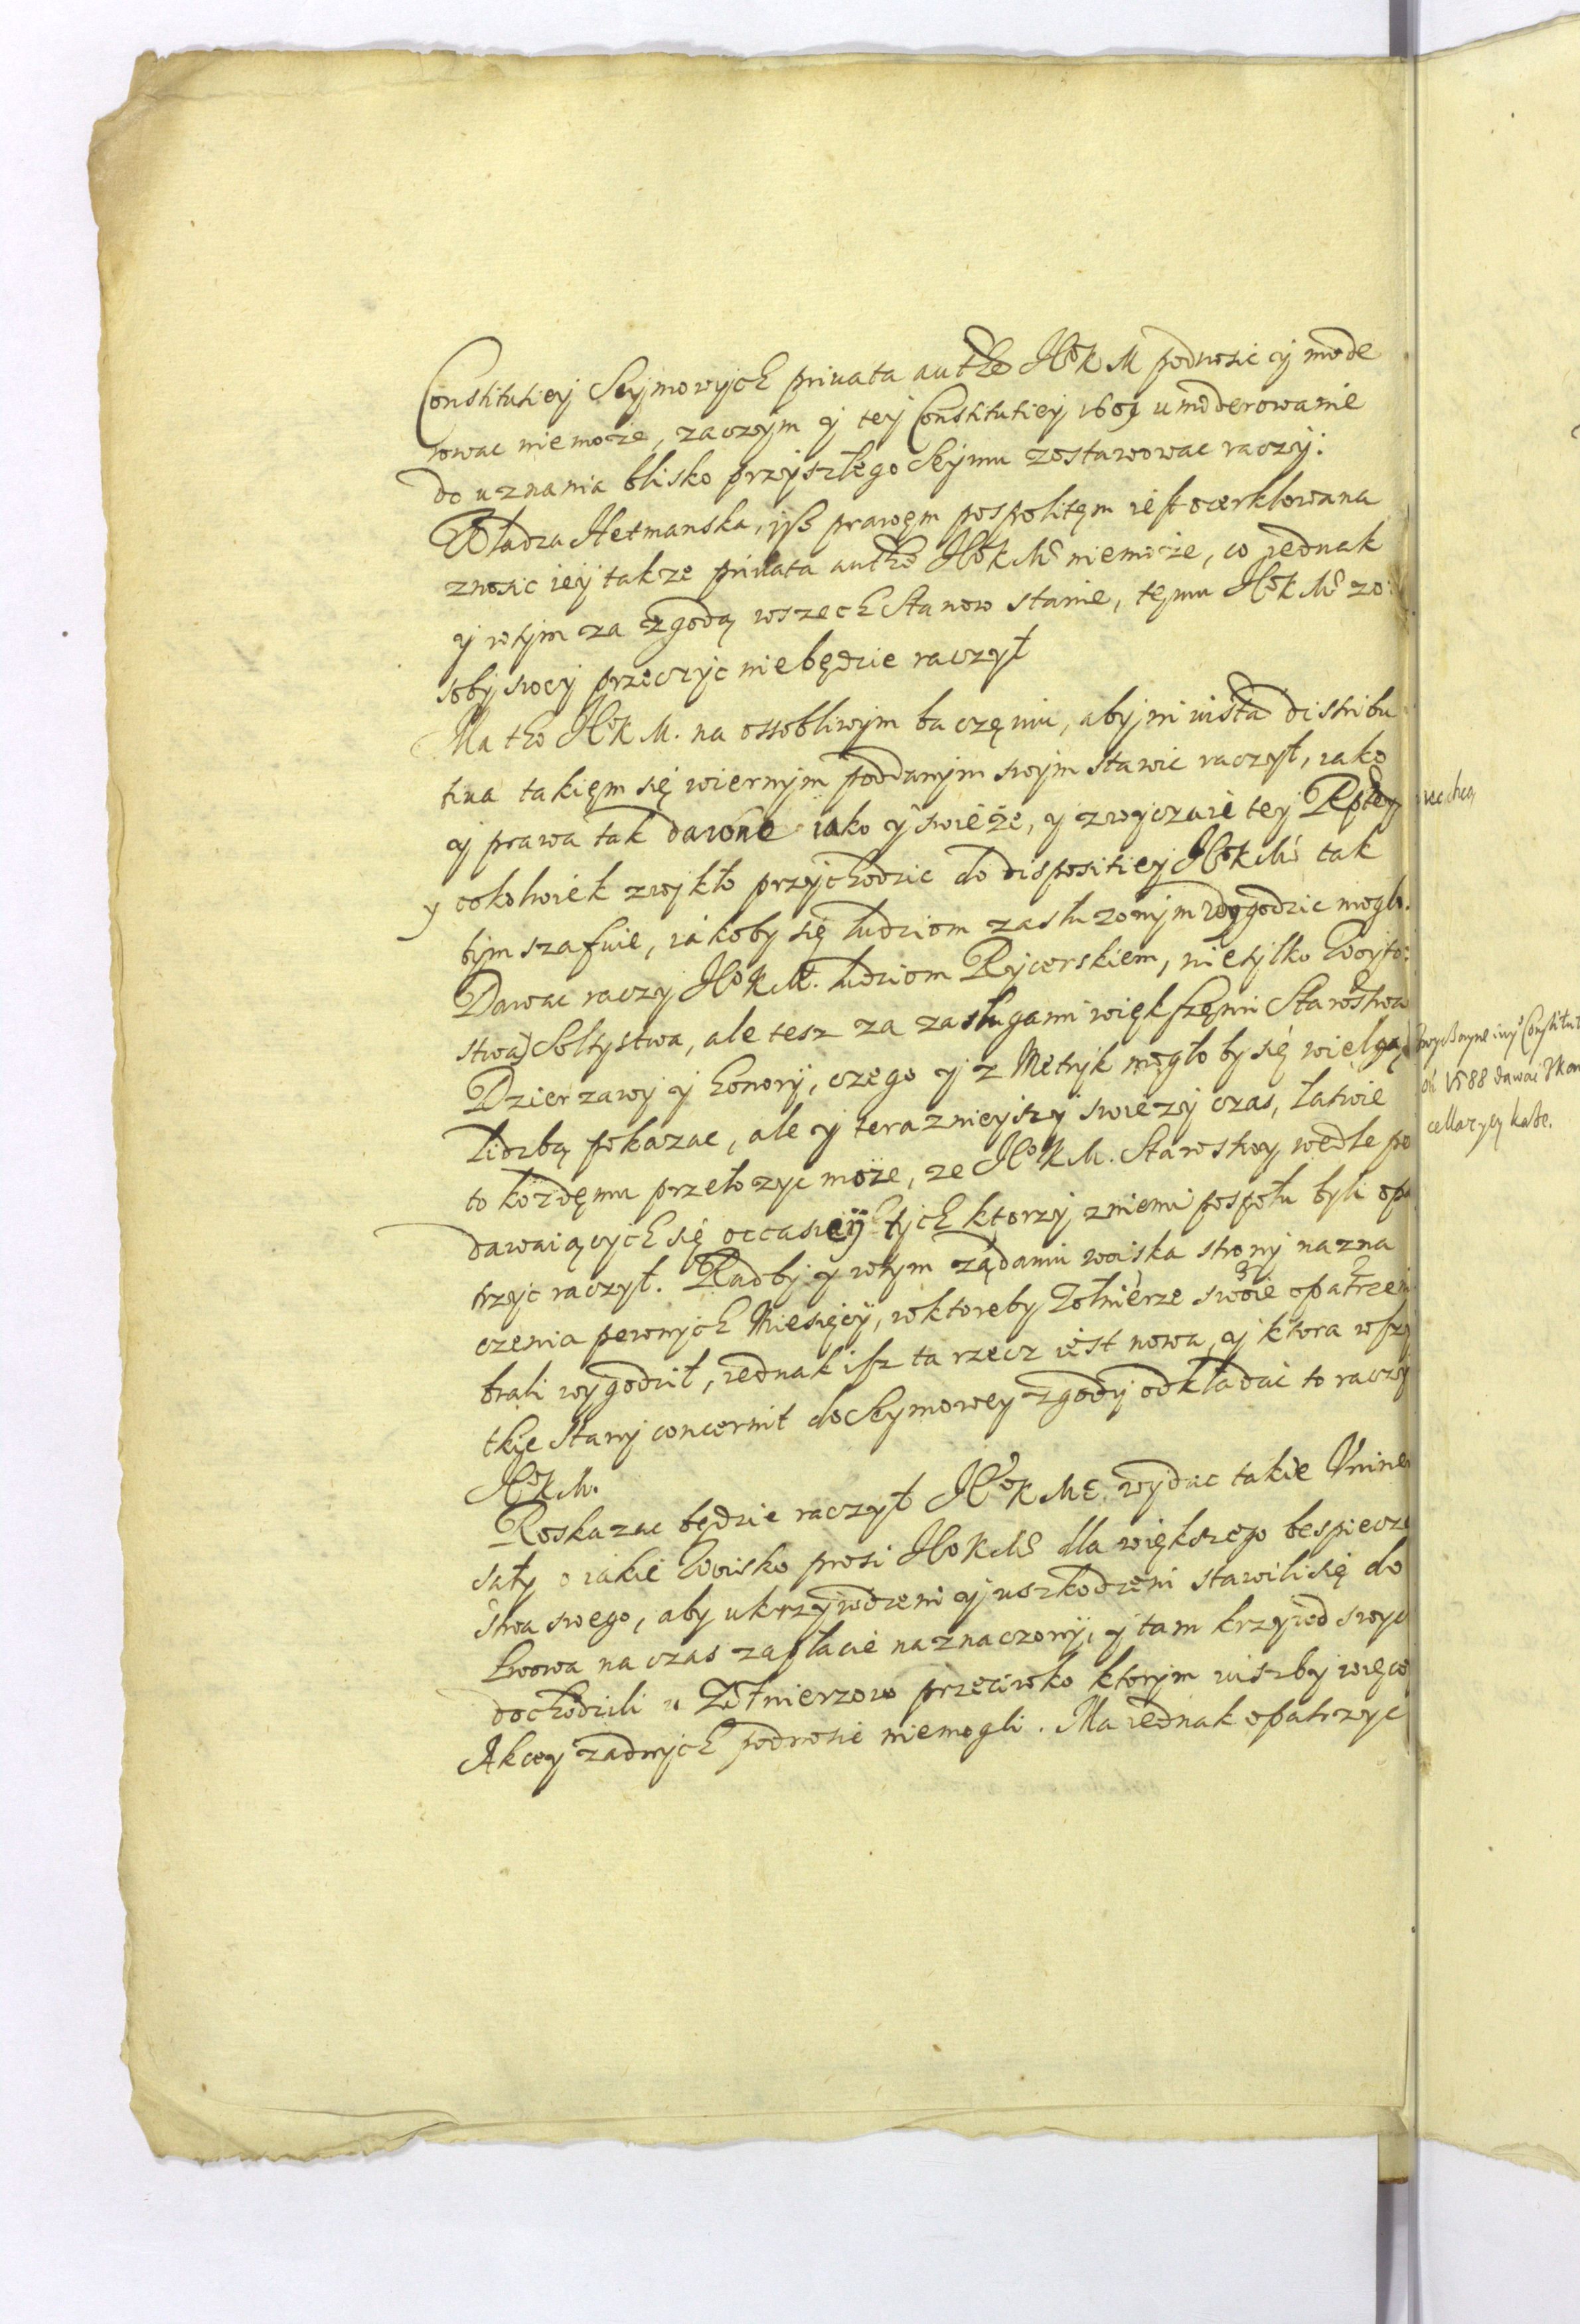 Constitutiey Seymowych priuata autho JHo K M podnosic y mode
rowac niemoże, zaczym y tey Constitutiey 1609 umoderowanie
do uznania blisko przyszłego Seymu zostawowac raczy:
Władza Hetmanska, ysz prawęm pospolitęm iest ocerklowana
znosic iey takze priuata autho JHo K Mc niemoże, co iednak
y wtym za zgodą wszech Stanow stanie, tęmu JHo K Mc zo:
soby swey przeczyc niebędzie raczył
Ma tho JHo K M. na ossobliwym baczęniu, aby mi iusta distribu
tiua takięm się wiernym poddanym swym stawic raczył, iako
y prawa tak dawne iako y swieże, y zwyczaie tey Rptey
y cokolwiek zwykło przychodzic do dispositiey JHo K Mci tak
tym szafuie, iakoby się ludziom zasłuzonym wygodzic mogło.
Dawac raczy JHo K M. ludziom Rycerskiem, nietylko Woyto:
stwa) Soltystwa, ale tesz za zasługami większęmi Starostwa
Dzierzawy y honory, czego y z Metryk mogło by się wielgą
liczbą pokazac, ale y terazniejszy swiezy czas, łatwie
to kożdęmu przełozyc może, ze JHo K M. Starostwy wedle po
dawaiących się occasiey tych ktorzy zniemi pospołu byli opa
trzyc raczył. Radby y wtym ządaniu woiska strony nazna
czenia pewnych Miesięcy, wktoreby Zołnierze swoie opatrzeni
brali wygodził, iednak isz ta rzecz iest nowa, y ktora wszy
tkie Stany concernit do Seymowey zgody odkładac to raczy
JHo K M.
Roskazac będzie raczył JHo K Mc wydac takie Vniuer
sały o iakie Woisko prosi JHo K Mc dla większego bespiecze
stwa swego, aby ukrzywdzeni y uszkodzeni stawili się do
Lwowa na czas zapłacie naznaczony, y tam krzywd swyc
dochodzili u Zołnierzow przeciwko ktorym iuszby więcey
Akcey zadnych podnosic niemogli. Ma iednak opatrzyc
Constitut
1588 dawac
cellaryey każe.